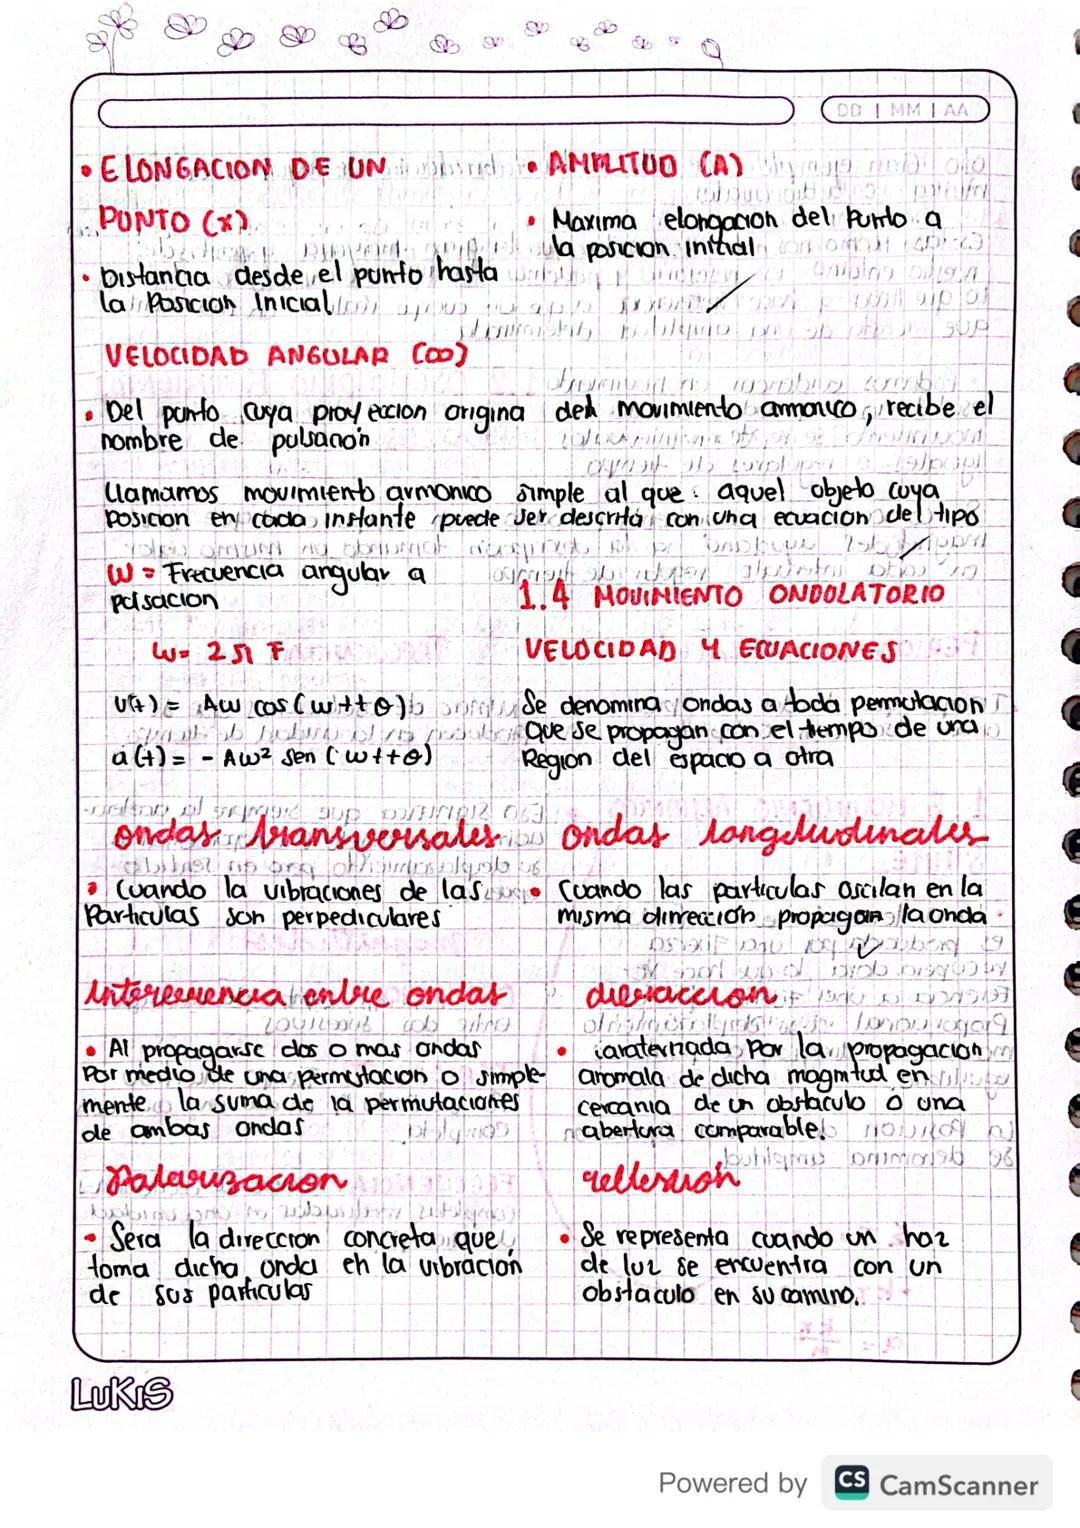 DD | MM | AA
• ELONGACION DE UN
PUNTO (X)
• Distancia desde el punto hasta
la Posicion Inicial
• AMPLITUD (A)
• Maxima elongacion del Punto a
la posicion initial
VELOCIDAD ANGULAR (ω)
• Del punto cuya proyeccion origina deh movimiento armonico, recibe el
nombre de pulsanón
Llamamos movimiento armonico simple al que: aquel objeto cuya
posicion en cada instante puede ser descrita con una ecuacion del tipo
W = Frecuencia angular a
pulsacion
W= 2π F
V(t) = Aw cos (wt+θ)
a(t) = - Aw² sen (wt+θ)
1.4 MOVIMIENTO ONDOLATORIO
VELOCIDAD Y ECUACIONES
Se denomina ondas a toda permutacion
Que se propagan con el tiempo de una
Region del espacio a otra
ondas transversales
• Cuando la vibraciones de las
Particulas son perpediculares
ondas longitudinales
• Cuando las particulas oscilan en la
misma dirrección propagan la onda
Interferencia entre ondas
• Al propagarse dos o mas ondas
Por medio de una permutacion o simple-
mente la suma de la permutaciones
de ambas ondas
difraccion
• caraternada Por la propagacion
aromala de dicha magnitud en
cercania de un obstaculo o una
abertura comparable.
Polarizacion
• Sera la direccion concreta que
toma dicha onda en la vibracion
de sus particulas
reflexion
• Se representa cuando un haz
de luz se encuentra con un
obstaculo en su camino.
LUKIS
Powered by CS CamScanner